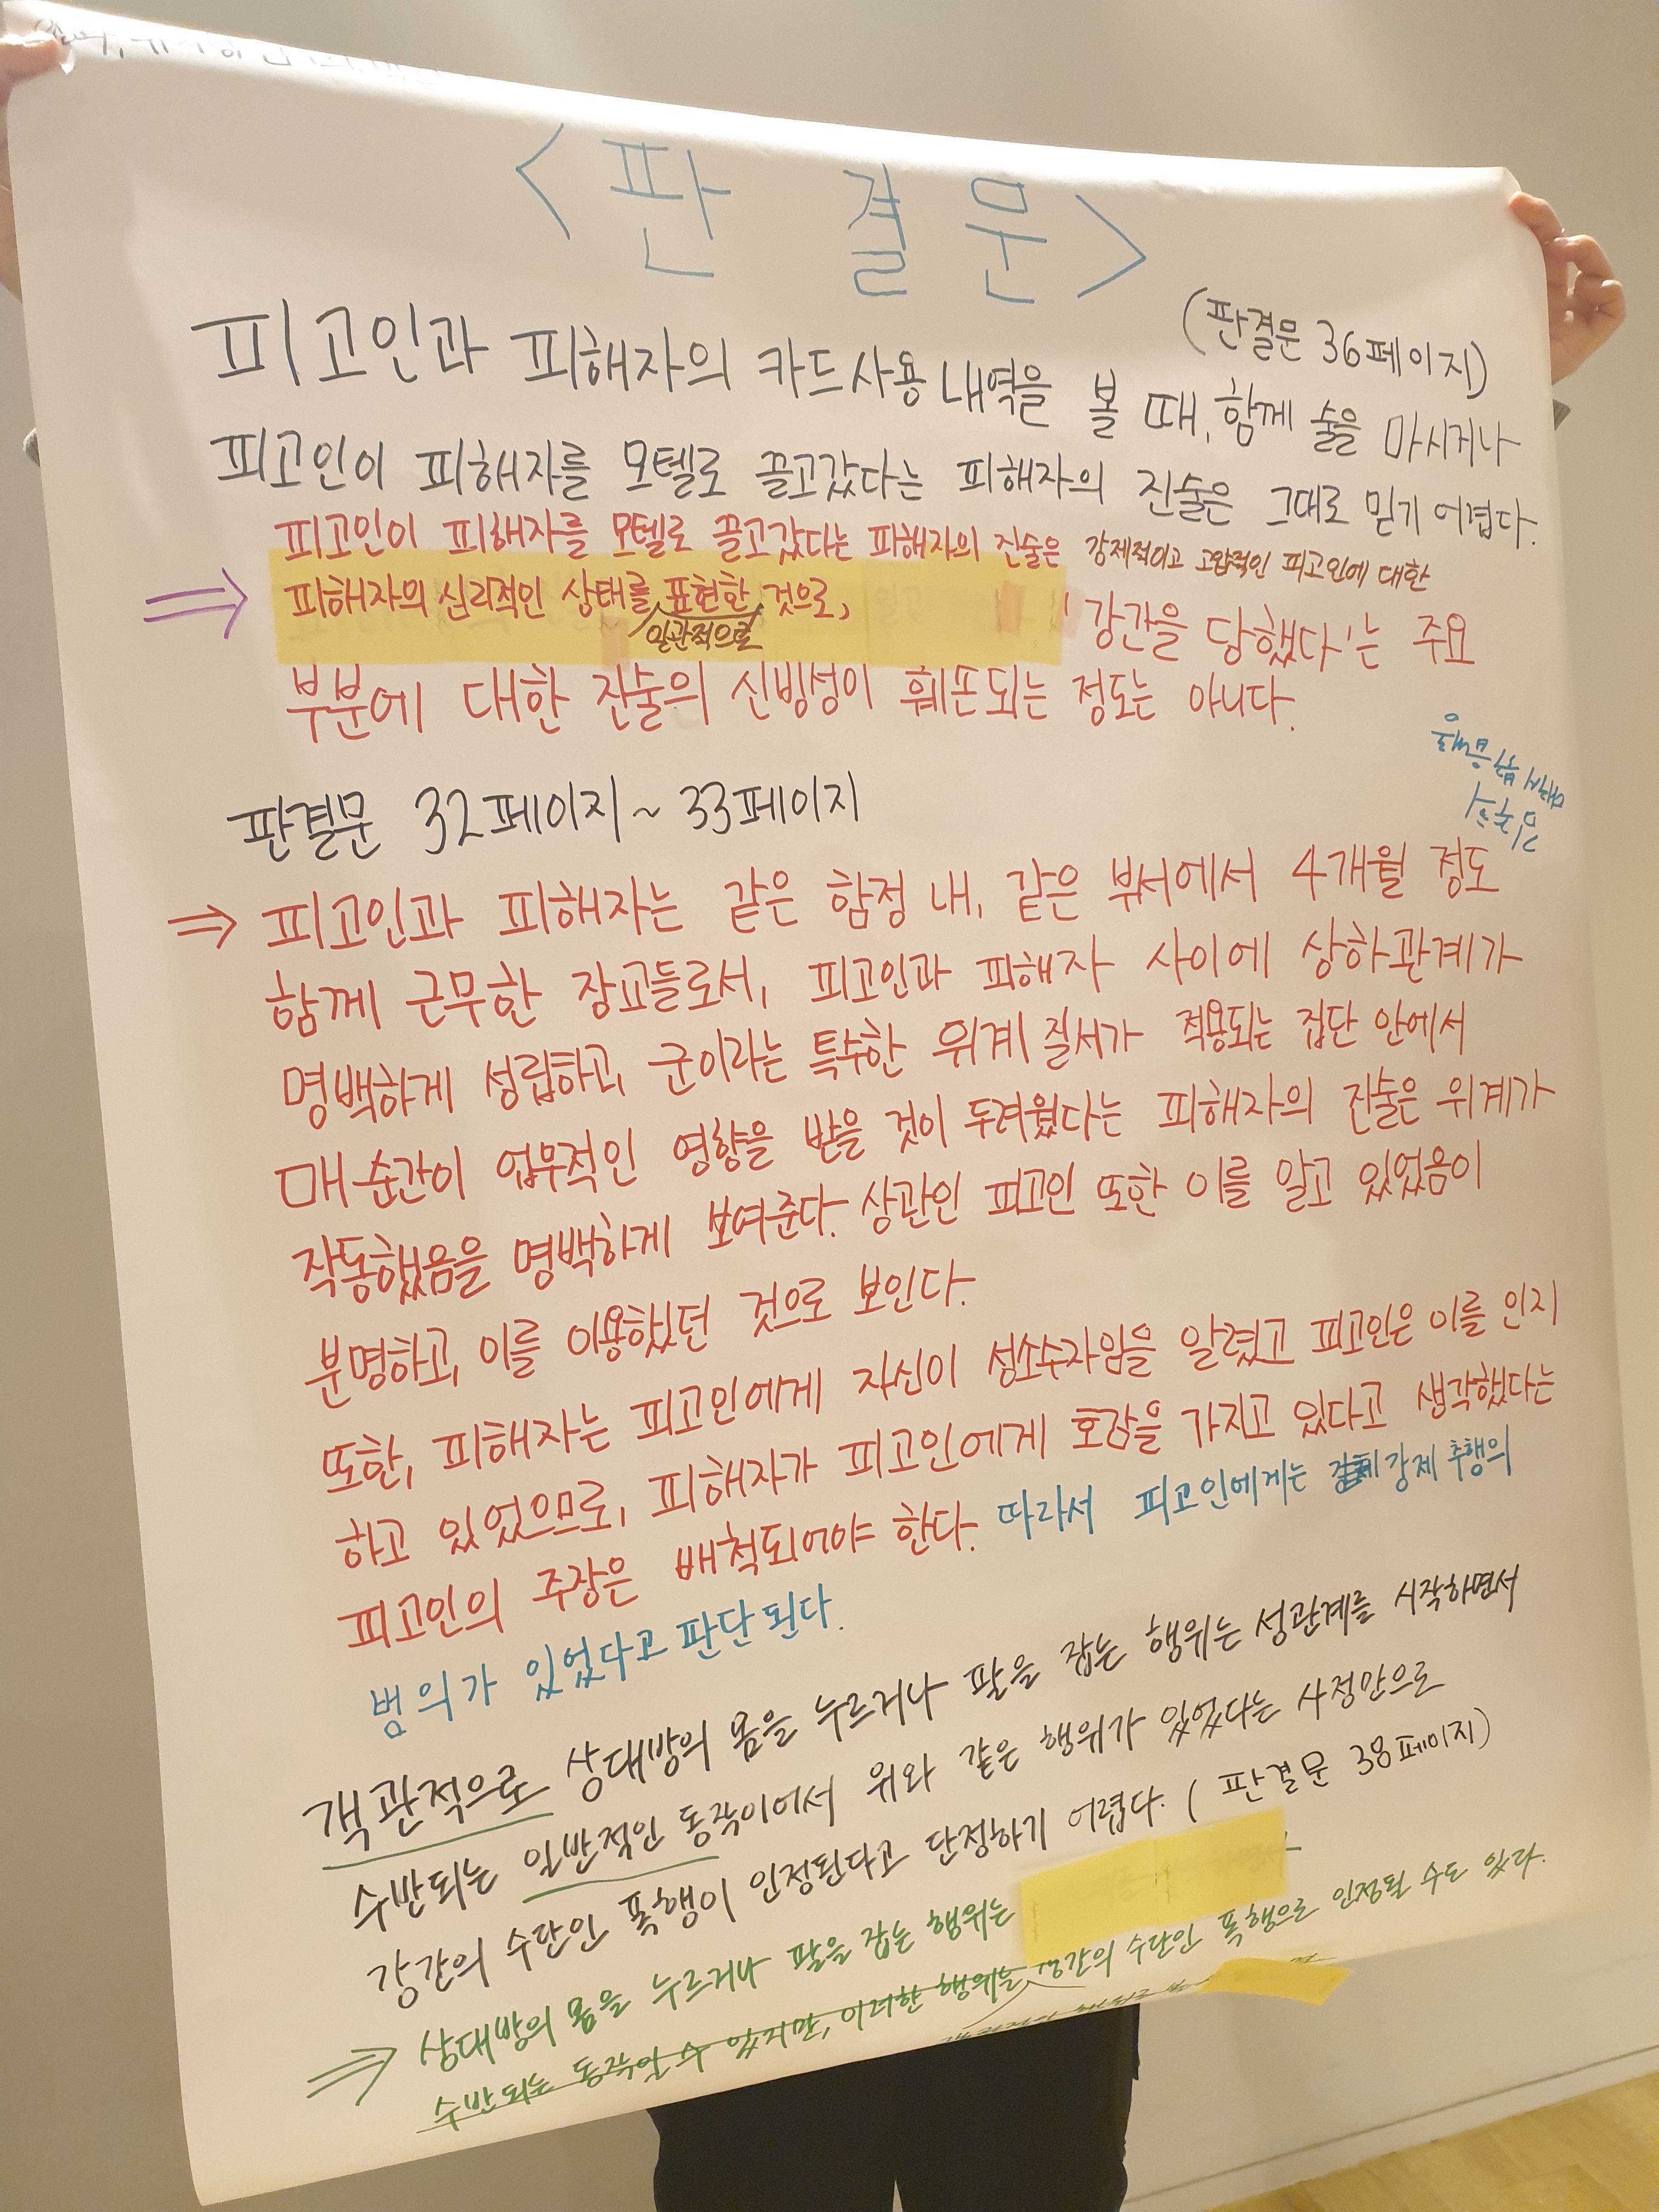 <판 결 문>
(판결문 36페이지)
피고인과 피해자의 카드사용내역을 볼 때, 함께 술을 마시거나
피고인이 피해자를 모텔로 끌고갔다는 피해자의 진술은 그대로 믿기 어렵다.
피고인이 피해자를 모텔로 끌고갔다는 피해자의 진술은 강제적이고 고압적인 피고인에 대한
⇒ 피해자의 심리적인 상태를 표현한 것으로,
일관적으로
'강간을 당했다'는 주요
부분에 대한 진술의 신빙성이 훼손되는 정도는 아니다.
판결문 32페이지~33페이지
⇒ 피고인과 피해자는 같은 함정 내, 같은 부서에서 4개월 정도
함께 근무한 장교들로서, 피고인과 피해자 사이에 상하관계가
명백하게 성립하고, 군이라는 특수한 위계질서가 적용되는 집단 안에서
매 순간이 업무적인 영향을 받을 것이 두려웠다는 피해자의 진술은 위계가
작동했음을 명백하게 보여준다. 상관인 피고인 또한 이를 알고 있었음이
분명하고, 이를 이용했던 것으로 보인다.
또한, 피해자는 피고인에게 자신이 성소수자임을 알렸고 피고인은 이를 인지
하고 있었으므로, 피해자가 피고인에게 호감을 가지고 있다고 생각했다는
피고인의 주장은 배척되어야 한다. 따라서 피고인에게는 강제추행의
범의가 있었다고 판단된다.
객관적으로 상대방의 몸을 누르거나 팔을 잡는 행위는 성관계를 시작하면서
수반되는 일반적인 동작이어서 위와 같은 행위가 있었다는 사정만으로
강간의 수단인 폭행이 인정된다고 단정하기 어렵다. (판결문 38페이지)
⇒ 상대방의 몸을 누르거나 팔을 잡는 행위는
수반되는 동작일 수 있지만, 이러한 행위는 강간의 수단인 폭행으로 인정될 수도 있다.